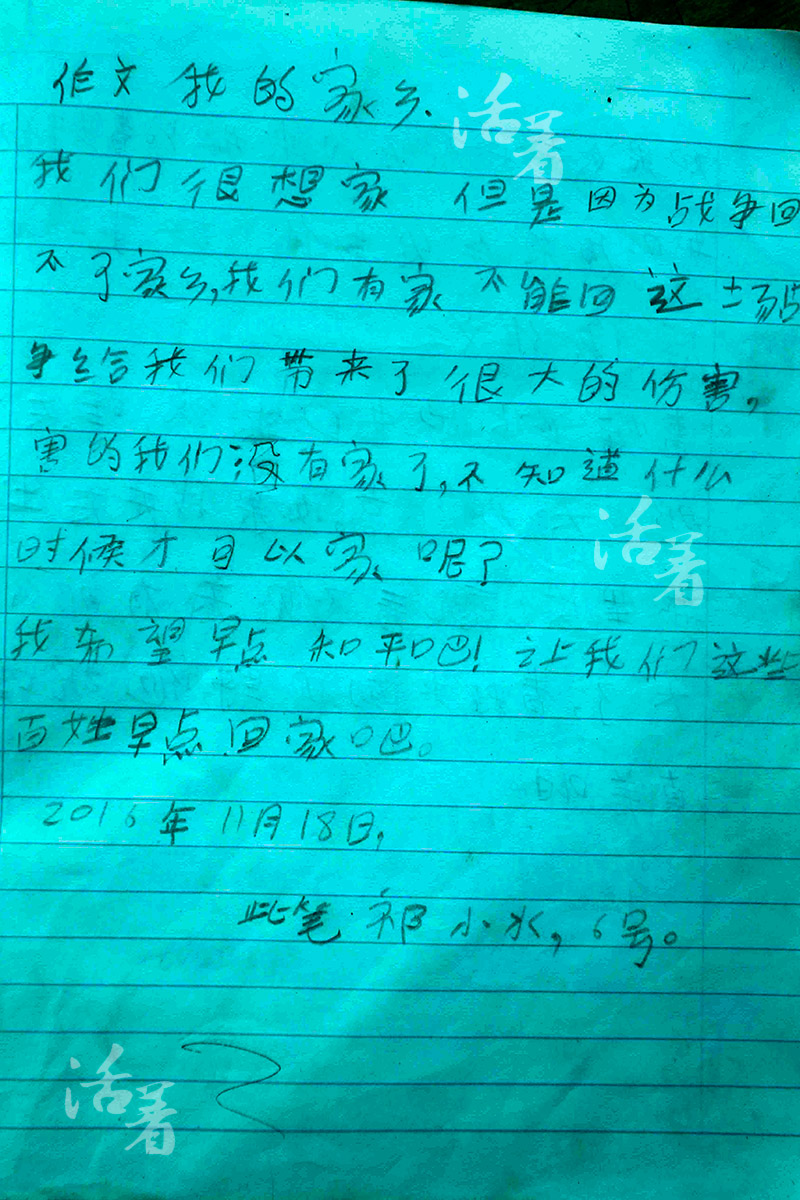 作文 我的家乡.
活着
我们很想家 但是因为战争回
不了家乡,我们有家不能回 这场战
争给我们带来了很大的伤害,
害的我们没有家了,不知道什么
时候才可以家呢了
活着
我希望早点知和吧!让我们这些
百姓早点回家吧。
2016年11月18日,
此笔 祁小水,6号。
活着